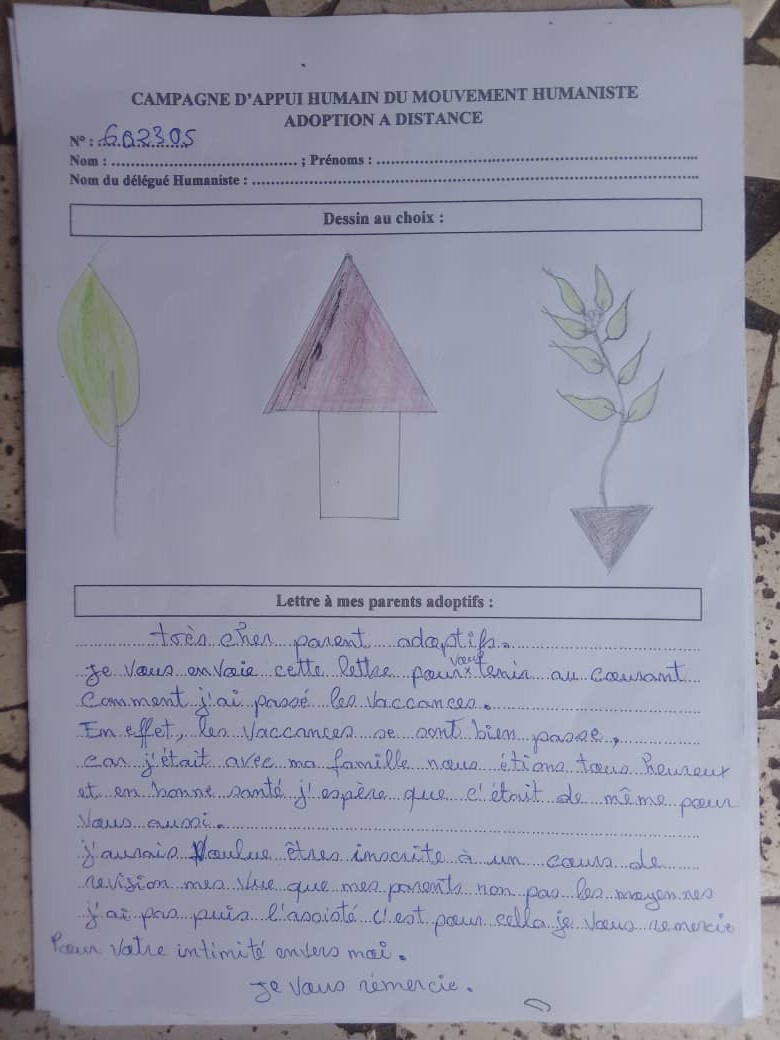 CAMPAGNE D'APPUI HUMAIN DU MOUVEMENT HUMANISTE
ADOPTION A DISTANCE
N° : 602305
Nom : ; Prénoms :
Nom du délégué Humaniste :
Dessin au choix :
Lettre à mes parents adoptifs :
très cher parent adoptifs.
je vous envoie cette lettre pour vous tenir au courant
Comment j'ai passé les vaccances.
En effet, les vaccances se sont bien passe,
car j'était avec ma famille nous étions tous heureux
et en bonne santé j'espère que c'était de même pour
vous aussi.
j'aurais voulue êtres inscrite à un cours de
revision mes vue que mes parents non pas les moyennes
j'ai pas puis l'assisté c'est pour cella je vous remercie
Pour votre intimité envers moi.
je vous rémercie.